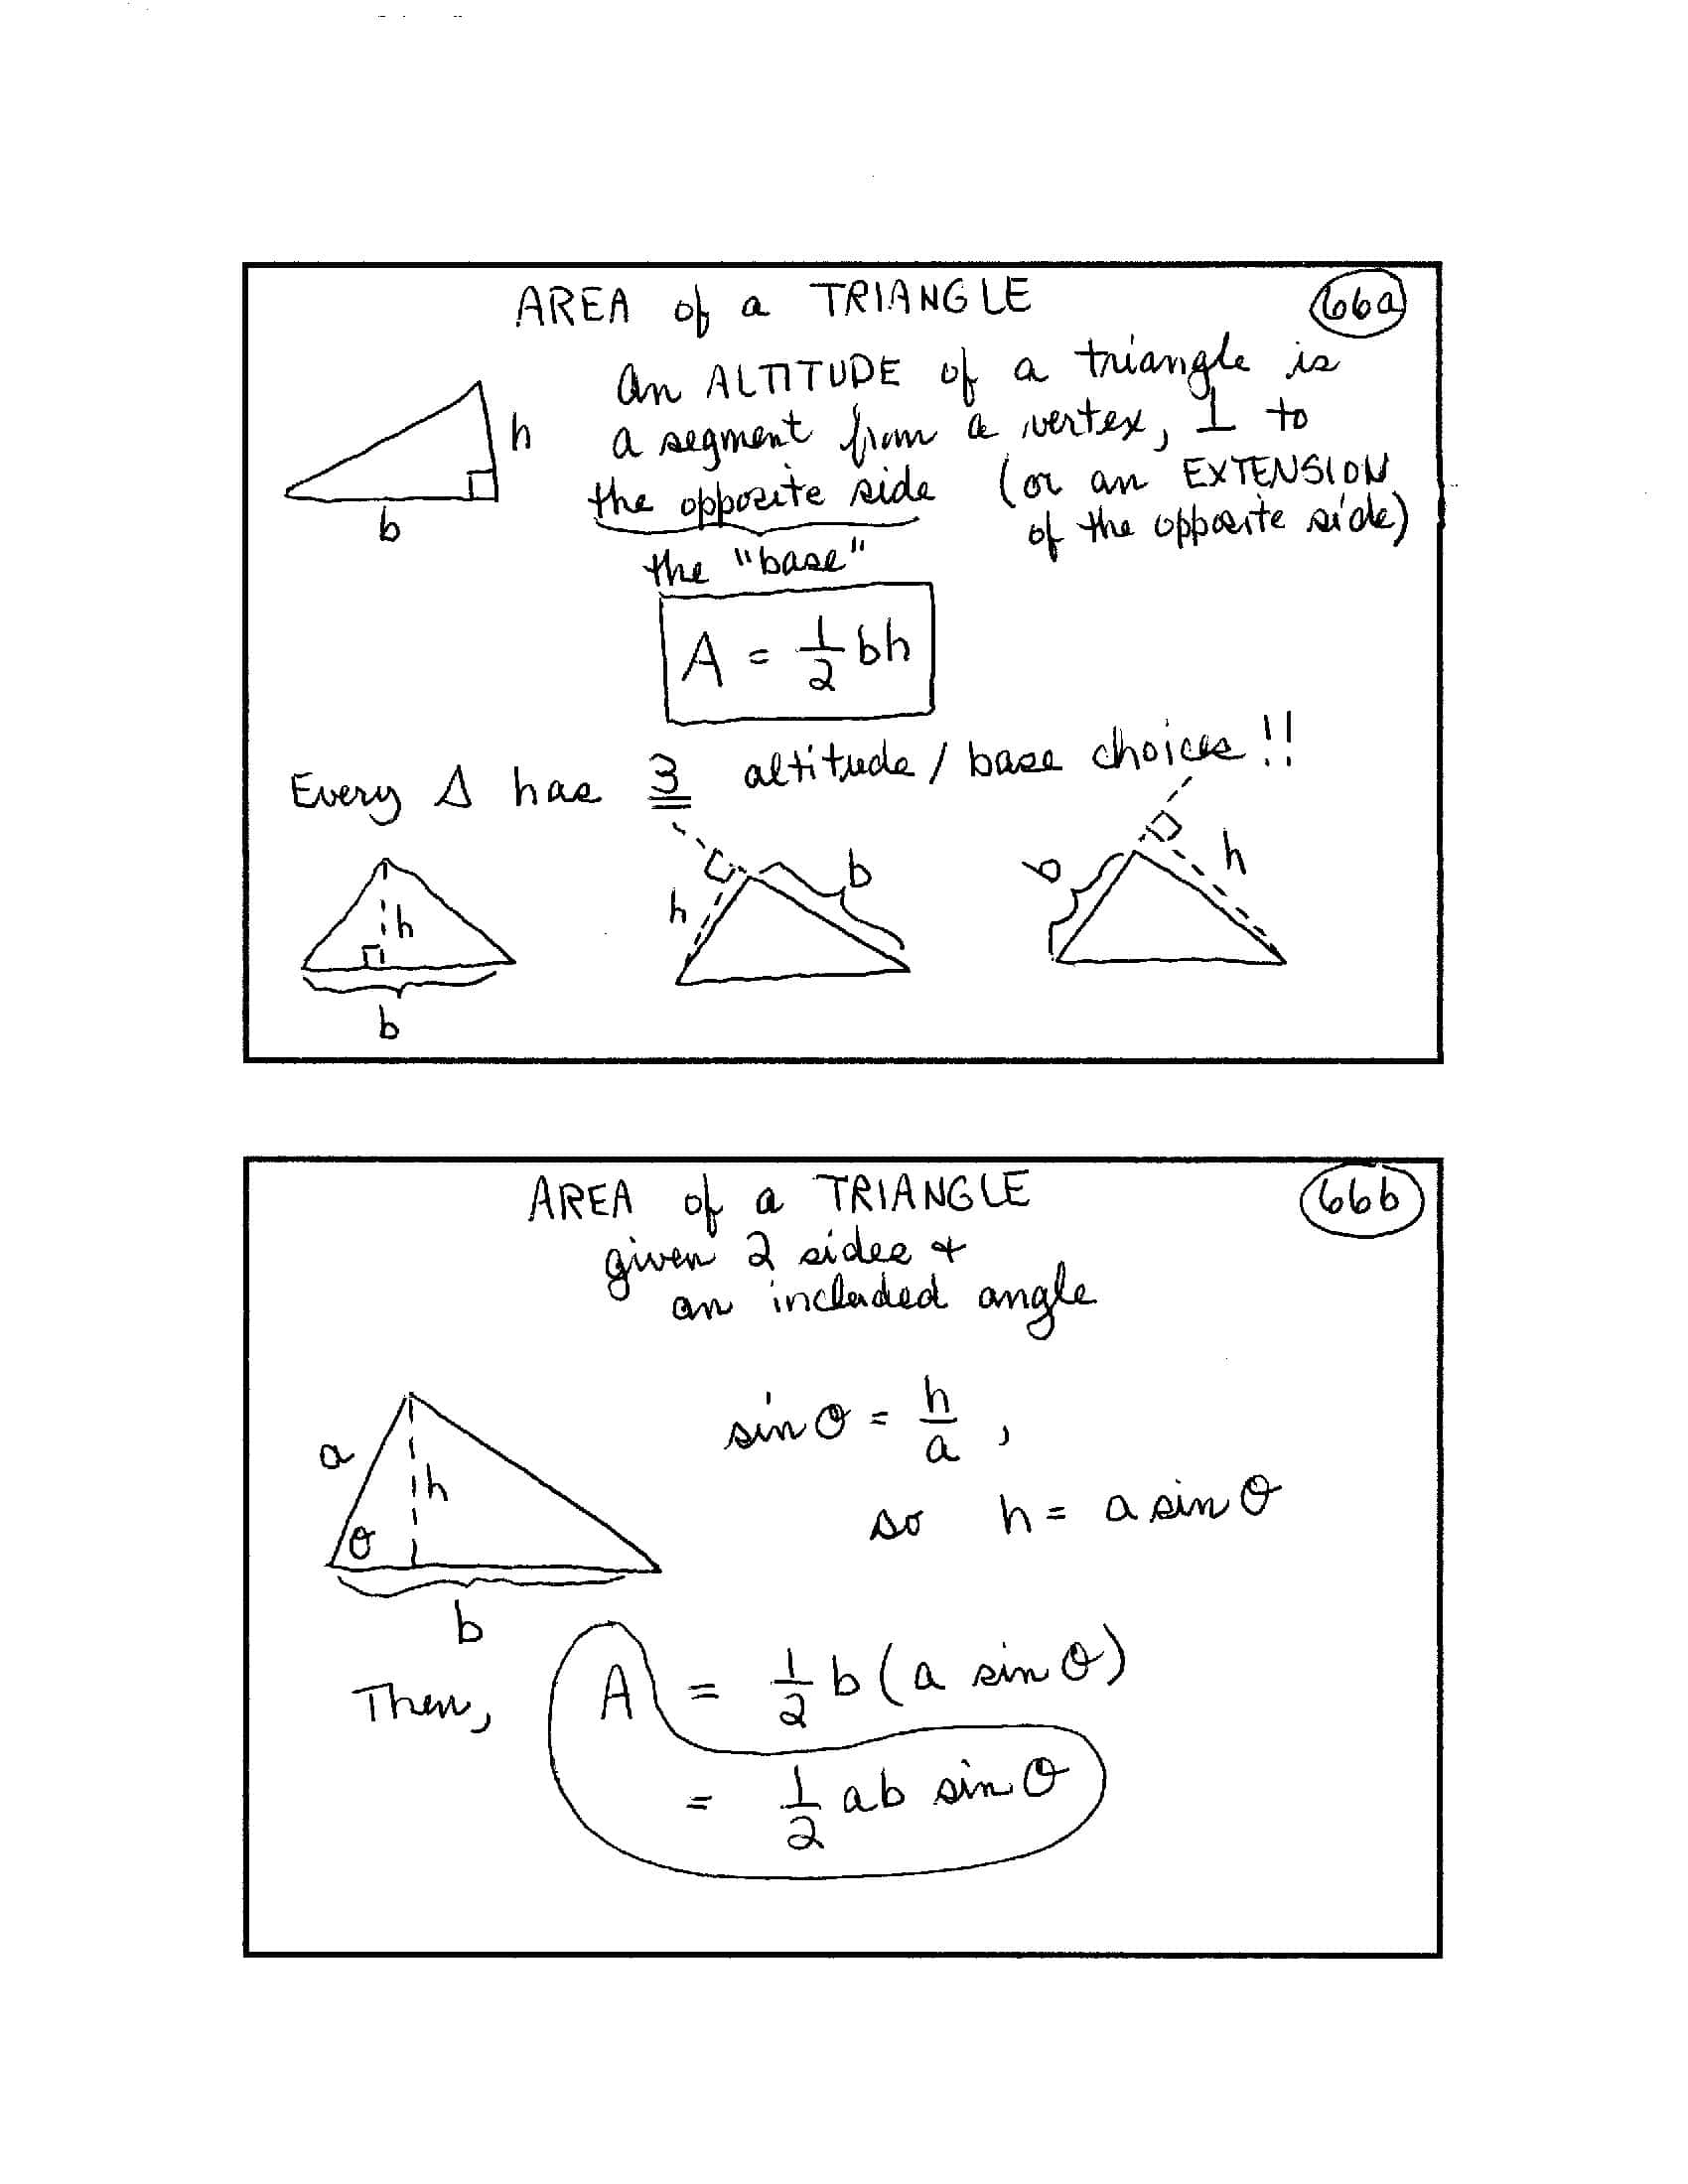 AREA of a TRIANGLE
66a
An ALTITUDE of a triangle is
a segment from a vertex, ⊥ to
the opposite side (or an EXTENSION
of the opposite side)
the "base"
h
b
A = 1/2 bh
Every Δ has 3 altitude / base choices!!
h
b
h
b
b
h
AREA of a TRIANGLE
66b
given 2 sides +
an included angle
a
h
θ
b
sin θ = h/a ,
so h = a sin θ
Then, A = 1/2 b (a sin θ)
= 1/2 ab sin θ